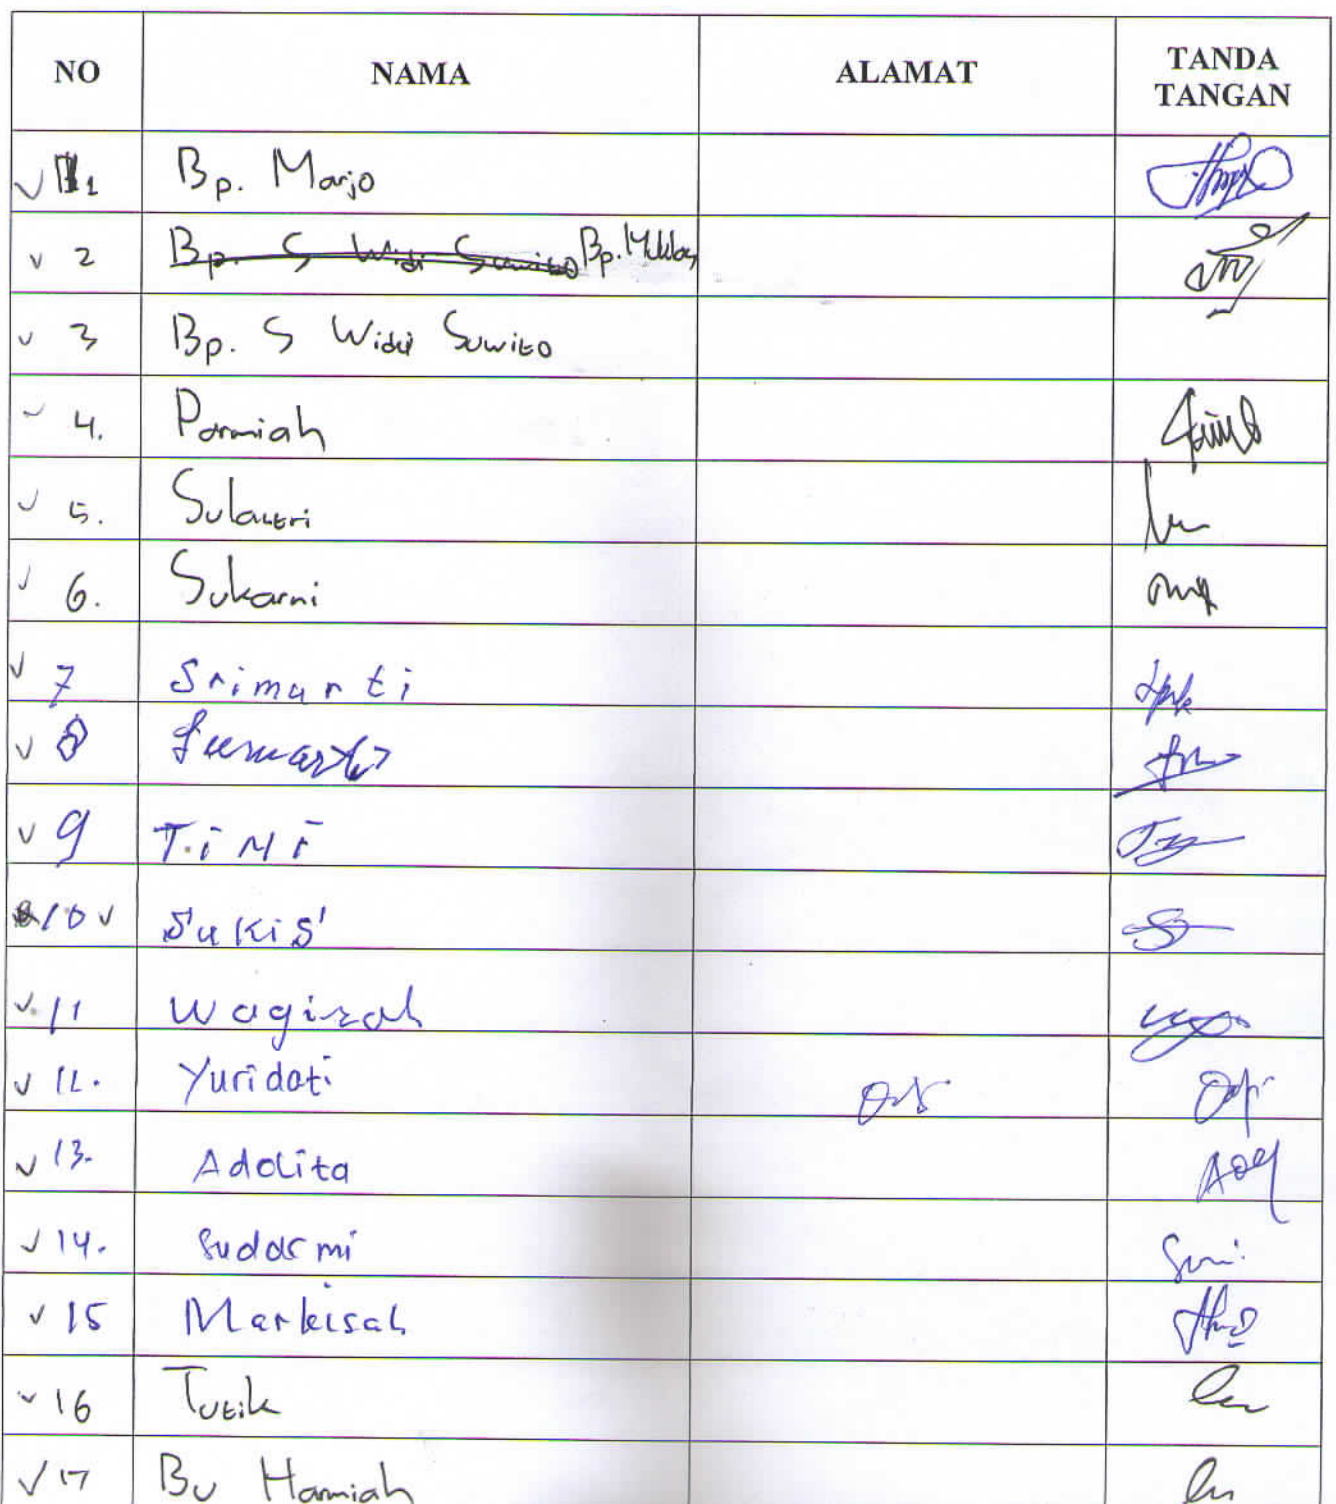 NO NAMA ALAMAT TANDA TANGAN
1 Bp. Marjo
2 Bp. S Widi Suwito Bp. Muklas
3 Bp. S Widi Suwito
4. Parmiah
5. Sulastri
6. Sukarni
7 Srimurti
8 Sumarto
9 TiNi
10 Sukis
11 Wagirah
12. Yuridati
13. Adalita
14. Sudarmi
15 Markisah
16 Tutik
17 Bu Harmiah